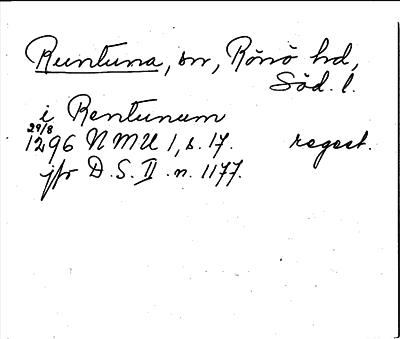 Runtuna, sn, Rönö hd,
Söd. l.
i Rentunum
29/8
1296 NMU 1, s. 17. regest.
jfr D.S. II n. 1177.